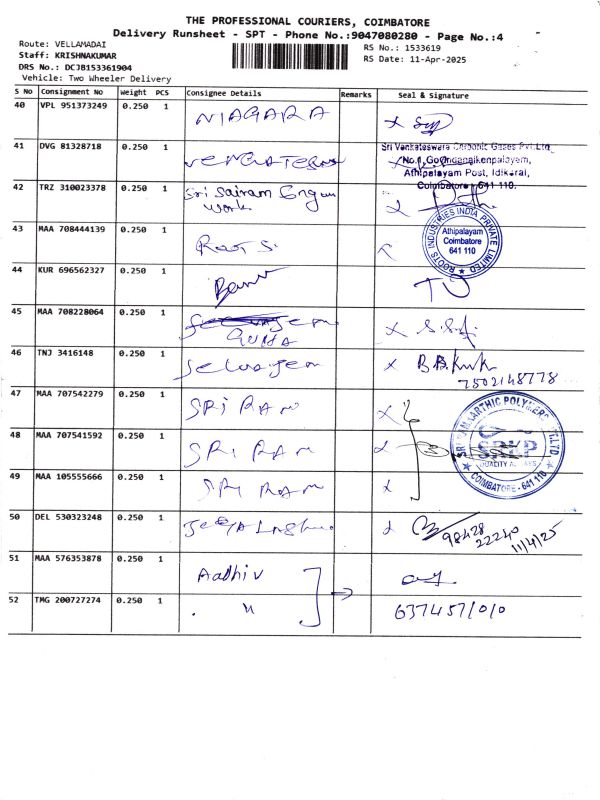 THE PROFESSIONAL COURIERS, COIMBATORE
Delivery Runsheet - SPT - Phone No.:9047080280 - Page No.:4
Route: VELLAMADAI
Staff: KRISHNAKUMAR
DRS No.: DCJB153361904
Vehicle: Two Wheeler Delivery
RS No.: 1533619
RS Date: 11-Apr-2025
S No Consignment No Weight PCS Consignee Details Remarks Seal & signature
40 VPL 951373249 0.250 1 NIAGARA
41 DVG 81328718 0.250 1
Sri Venkateswara Chronic Gases Pvt Ltd
No.1, Goundanaikenpalayam,
Athipalayam Post, Idikarai,
Coimbatore - 641 110.
42 TRZ 310023378 0.250 1 Sri Sairam Engun
work
43 MAA 708444139 0.250 1 Roots
ROOTS INDUSTRIES INDIA PRIVATE LIMITED
Athipalayam
Coimbatore
641 110
44 KUR 696562327 0.250 1
45 MAA 708228064 0.250 1
GUHA
46 TNJ 3416148 0.250 1
7502148778
47 MAA 707542279 0.250 1 SRI RAM
48 MAA 707541592 0.250 1 SRI RAM
49 MAA 105555666 0.250 1 SRI RAM
SRKP
QUALITY ALWAYS
COIMBATORE - 641 110
50 DEL 530323248 0.250 1
98428
22240
11/4/25
51 MAA 576353878 0.250 1 Aadhiv
52 TMG 200727274 0.250 1 . "
6374571010